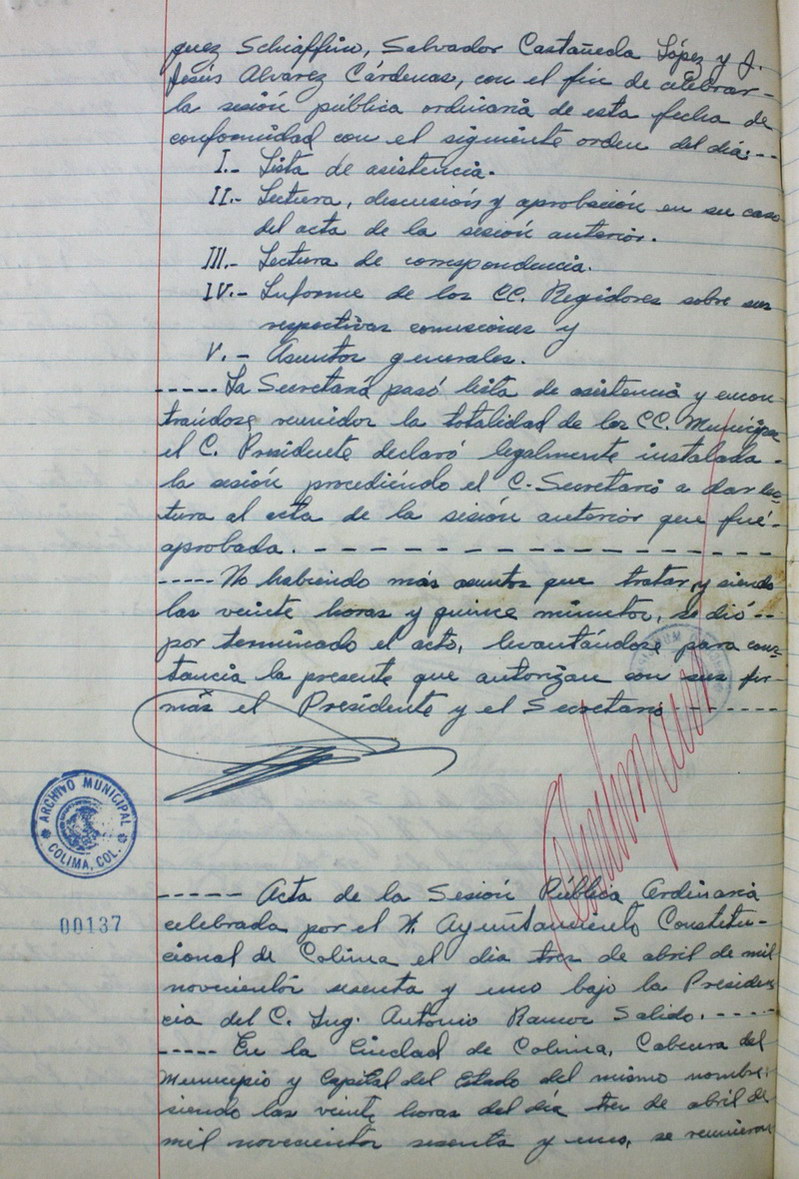 guez Schiaffino, Salvador Castañeda López y J.
Jesús Alvarez Cárdenas, con el fin de celebrar-
la sesión pública ordinaria de esta fecha de
conformidad con el siguiente orden del día:--
I.- Lista de asistencia.
II.- Lectura, discusión y aprobación en su caso
del acta de la sesión anterior.
III.- Lectura de correspondencia.
IV.- Informe de los CC. Regidores sobre sus
respectivas comisiones y
V.- Asuntos generales.
-----La Secretaría pasó lista de asistencia y encon-
trándose reunidos la totalidad de los CC. Munícipes
el C. Presidente declaró legalmente instalada-
la sesión procediendo el C. Secretario a dar lec-
tura al acta de la sesión anterior que fué-
aprobada. - - - - - - - - - - - - - - -
-----No habiendo más asuntos que tratar y siendo
las veinte horas y quince minutos, se dió--
por terminado el acto, levantándose para cons-
tancia la presente que autorizan con sus fir-
mas el Presidente y el Secretario-------
ARCHIVO MUNICIPAL
COLIMA, COL.
00137
----- Acta de la Sesión Pública Ordinaria
celebrada por el H. Ayuntamiento Constitu-
cional de Colima el día tres de abril de mil
novecientos sesenta y uno bajo la Presiden-
cia del C. Ing. Antonio Ramos Salido.-----
----- En la Ciudad de Colima, Cabecera del
Municipio y Capital del Estado del mismo nombre,
siendo las veinte horas del día tres de abril de
mil novecientos sesenta y uno, se reunieron